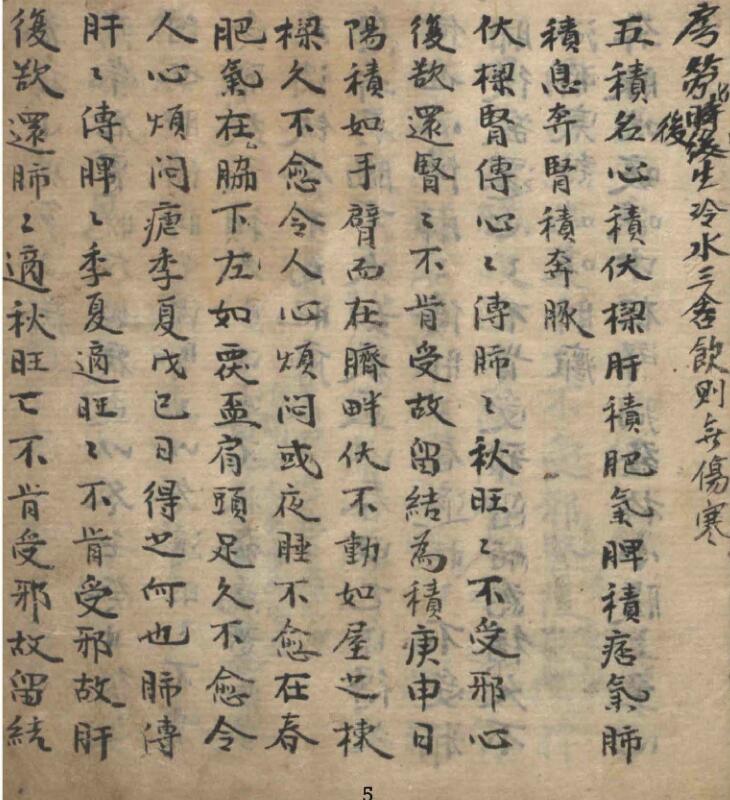 房勞時後生冷水三合飲則無傷寒
後
五積名心積伏樑肝積肥氣脾積痞氣肺
積息奔腎積奔豚
伏樑腎傳心〻傳肺〻秋旺〻不受邪心
後欲還腎〻不肯受故留結為積庚申日
陽積如手臂而在臍畔伏不動如屋之棟
樑久不愈令人心煩悶或夜睡不愈在春
肥氣在脇下左如覆盃有頭足久不愈令
人心煩悶瘧季夏戊己日得之何也肺傳
肝〻傳脾〻季夏適旺〻不肯受邪故肝
復欲還肺〻適秋旺亡不肯受邪故留結
5